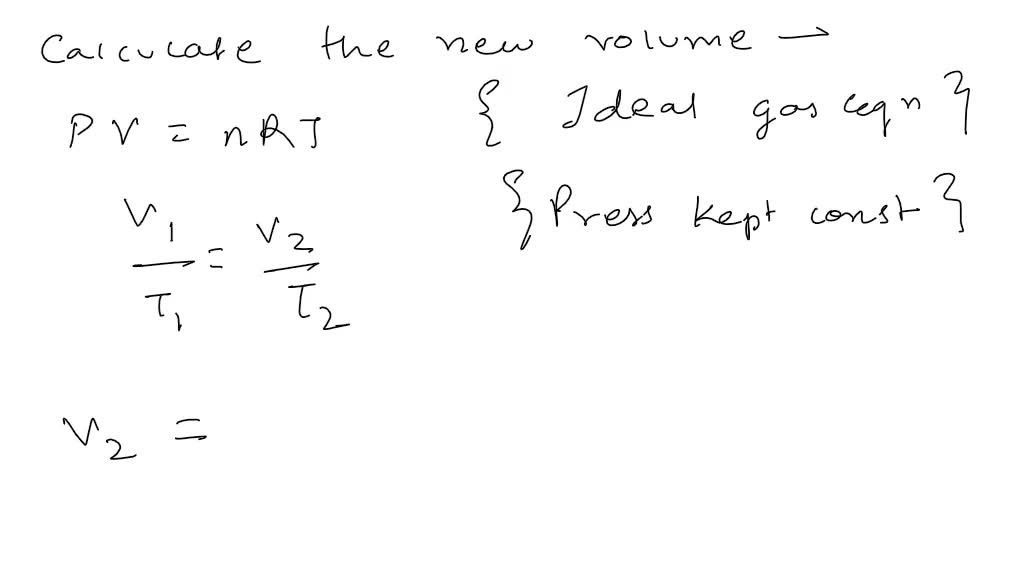 Calculate the new volume →
PV = nRT { Ideal gas eqn }
V₁/T₁ = V₂/T₂ { Press kept const }
V₂ =